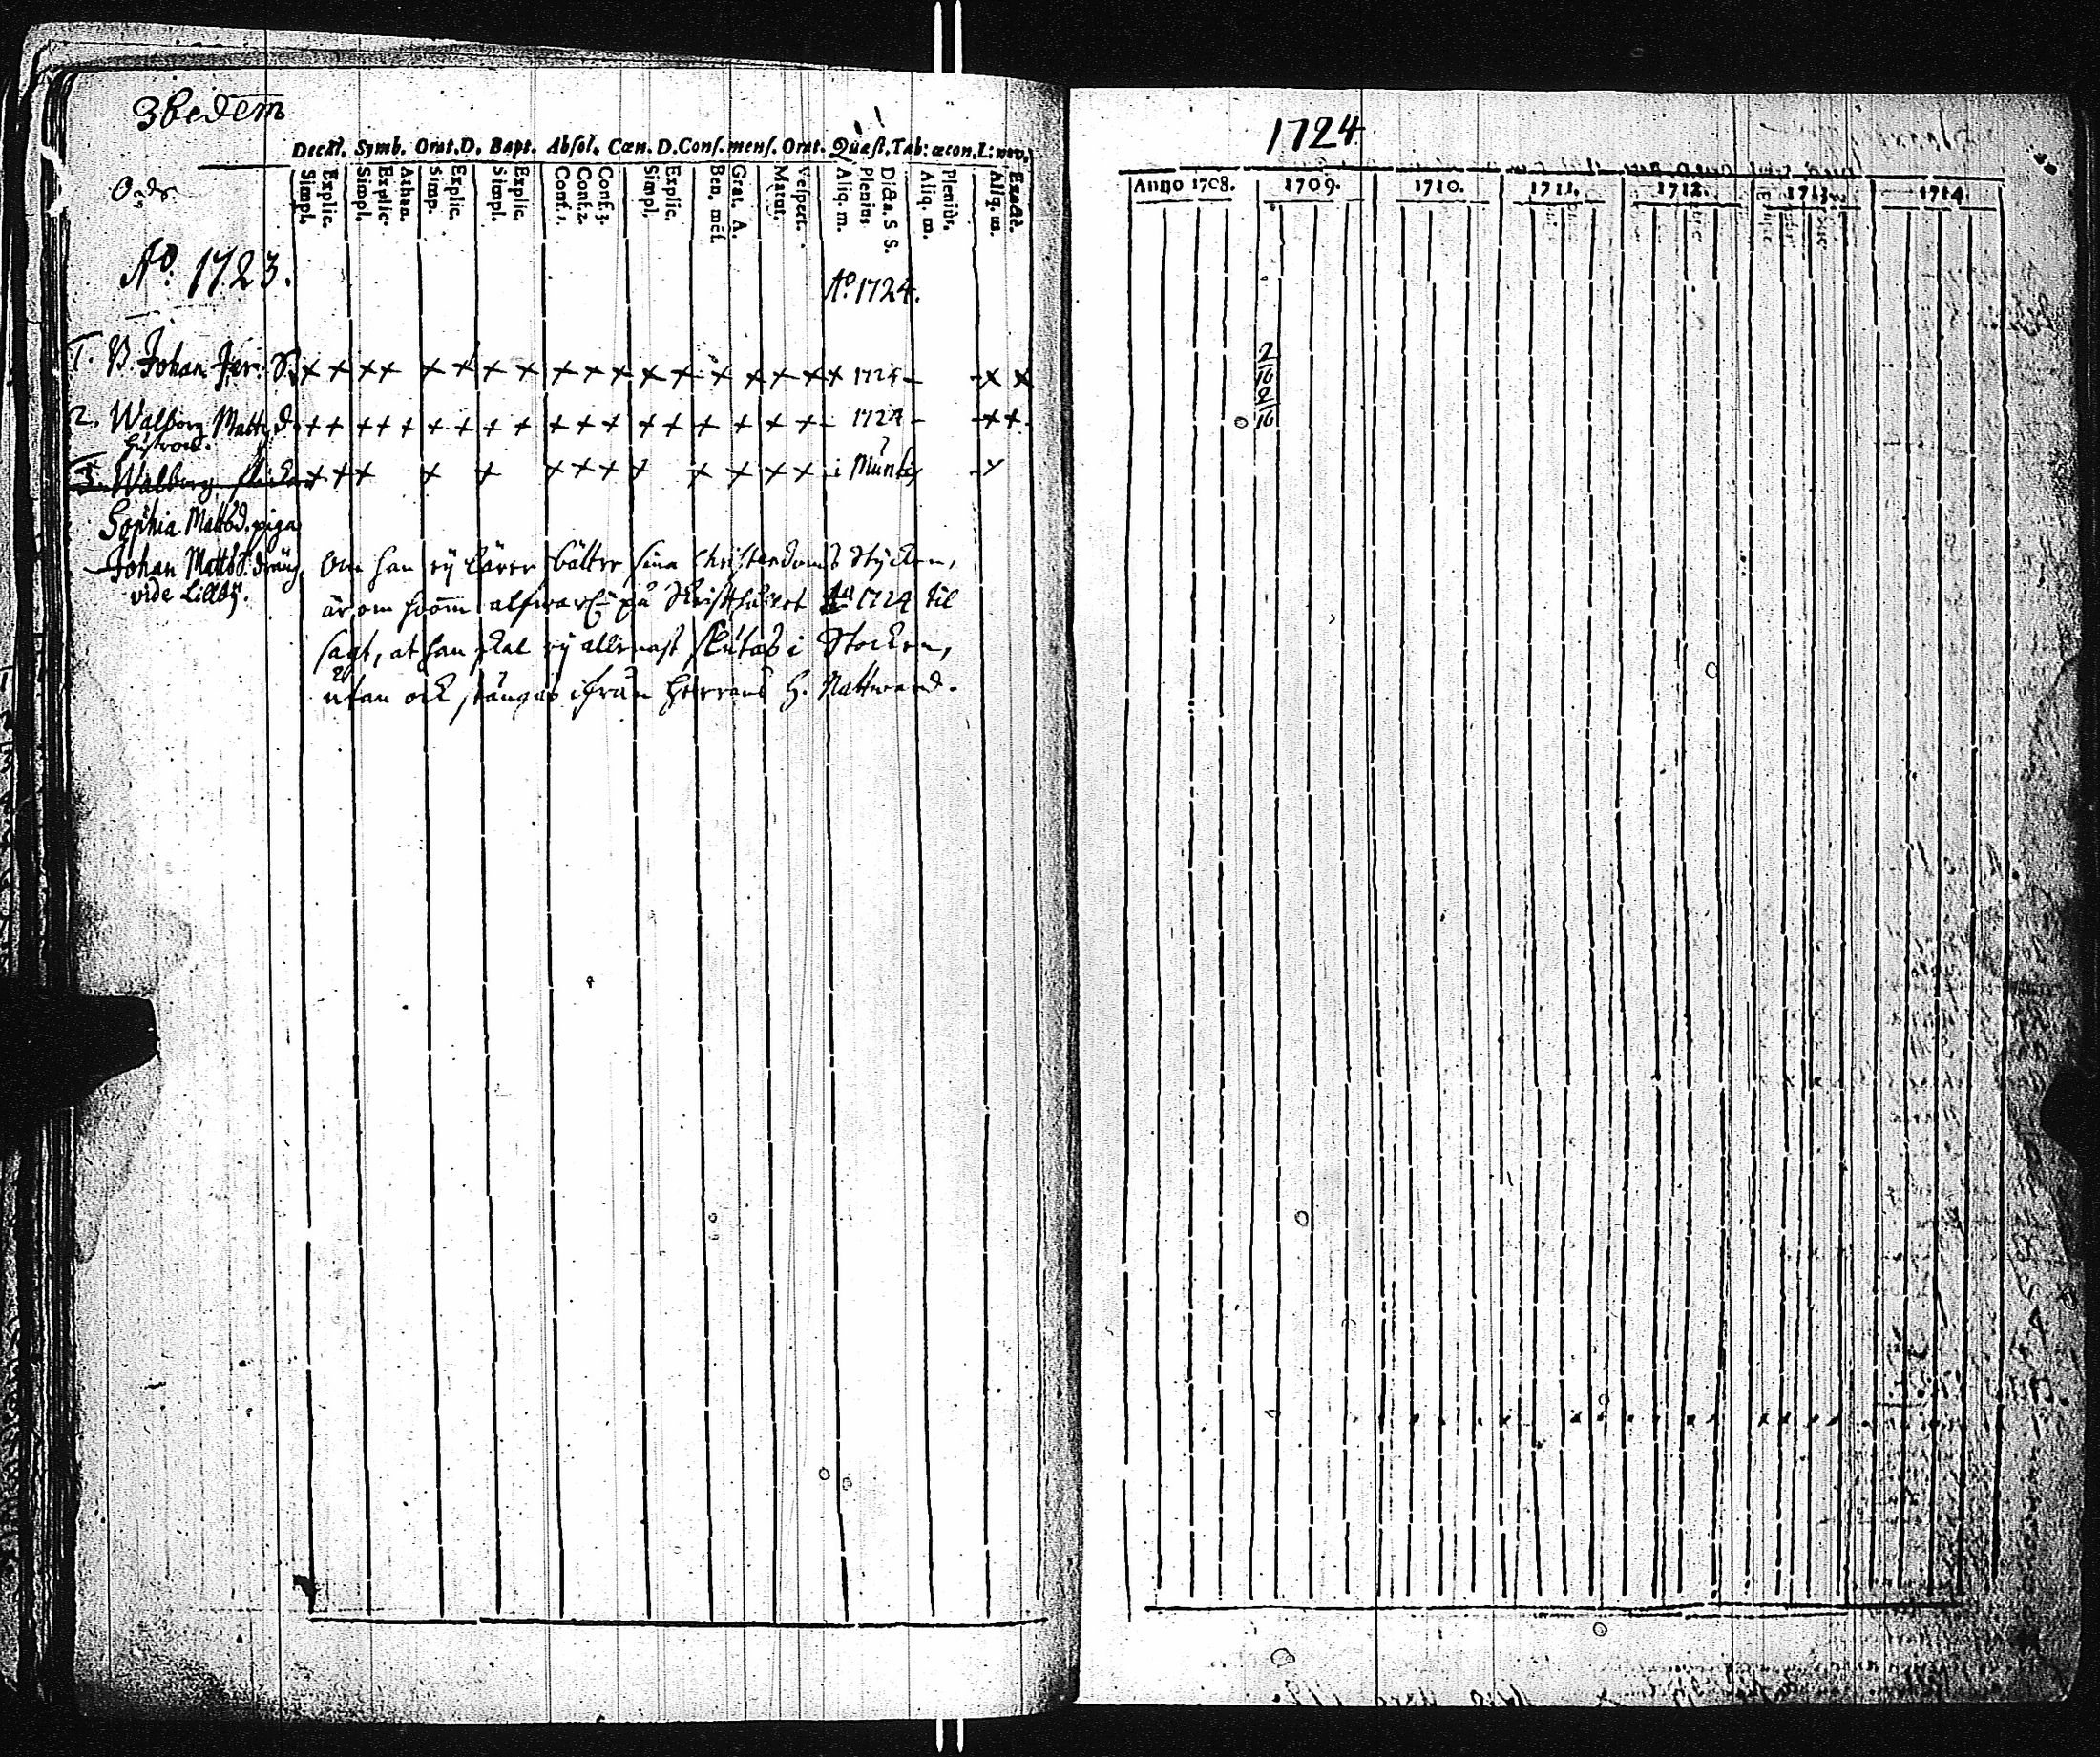 Ibidem
Decal. Symb. Orat. D. Bapt. Absol. Cœn. D. Conf. mens. Orat. Quæst. Tab: œcon. L: nov.
Simpl. Explic. Simpl. Explic. Athan. Simp. Explic. Simpl. Explic. Conf. 1. Conf. 2. Conf. 3. Simpl. Explic. Ben. mēs. Grat. A. Matut. Vespert. Aliq. m. Plenius D. & a. S S. Aliq. m. Plenius. Aliq. m. Exacte.
Aº. 1723.
Aº. 1724.
1. B. Johan Jer: S. x x x x x x x x x x x x x x x x x x 1724 - - x x
2. Walborg Matts d. + + + + + + + + + + + + + + + + + + - 1724 - - + +
hustrun.
3. Walborg flicka + + x x x x x x x x x x x - i Munt
Sophia Mattsd. piga
Johan Matts S. dräng, Om han ey lärer bätter sina Christendoms Stycken,
vide Lillby.
är om honom alfwarl: på Skriffthuset Aº 1724 til
sagt, at han skal ey allenast slutas i Stocken,
utan ock stängas ifrån Herrans H. Nattward.
1724
Anno 1708. 1709. 1710. 1711. 1712. 1713. 1714.
2
16
2
0 16